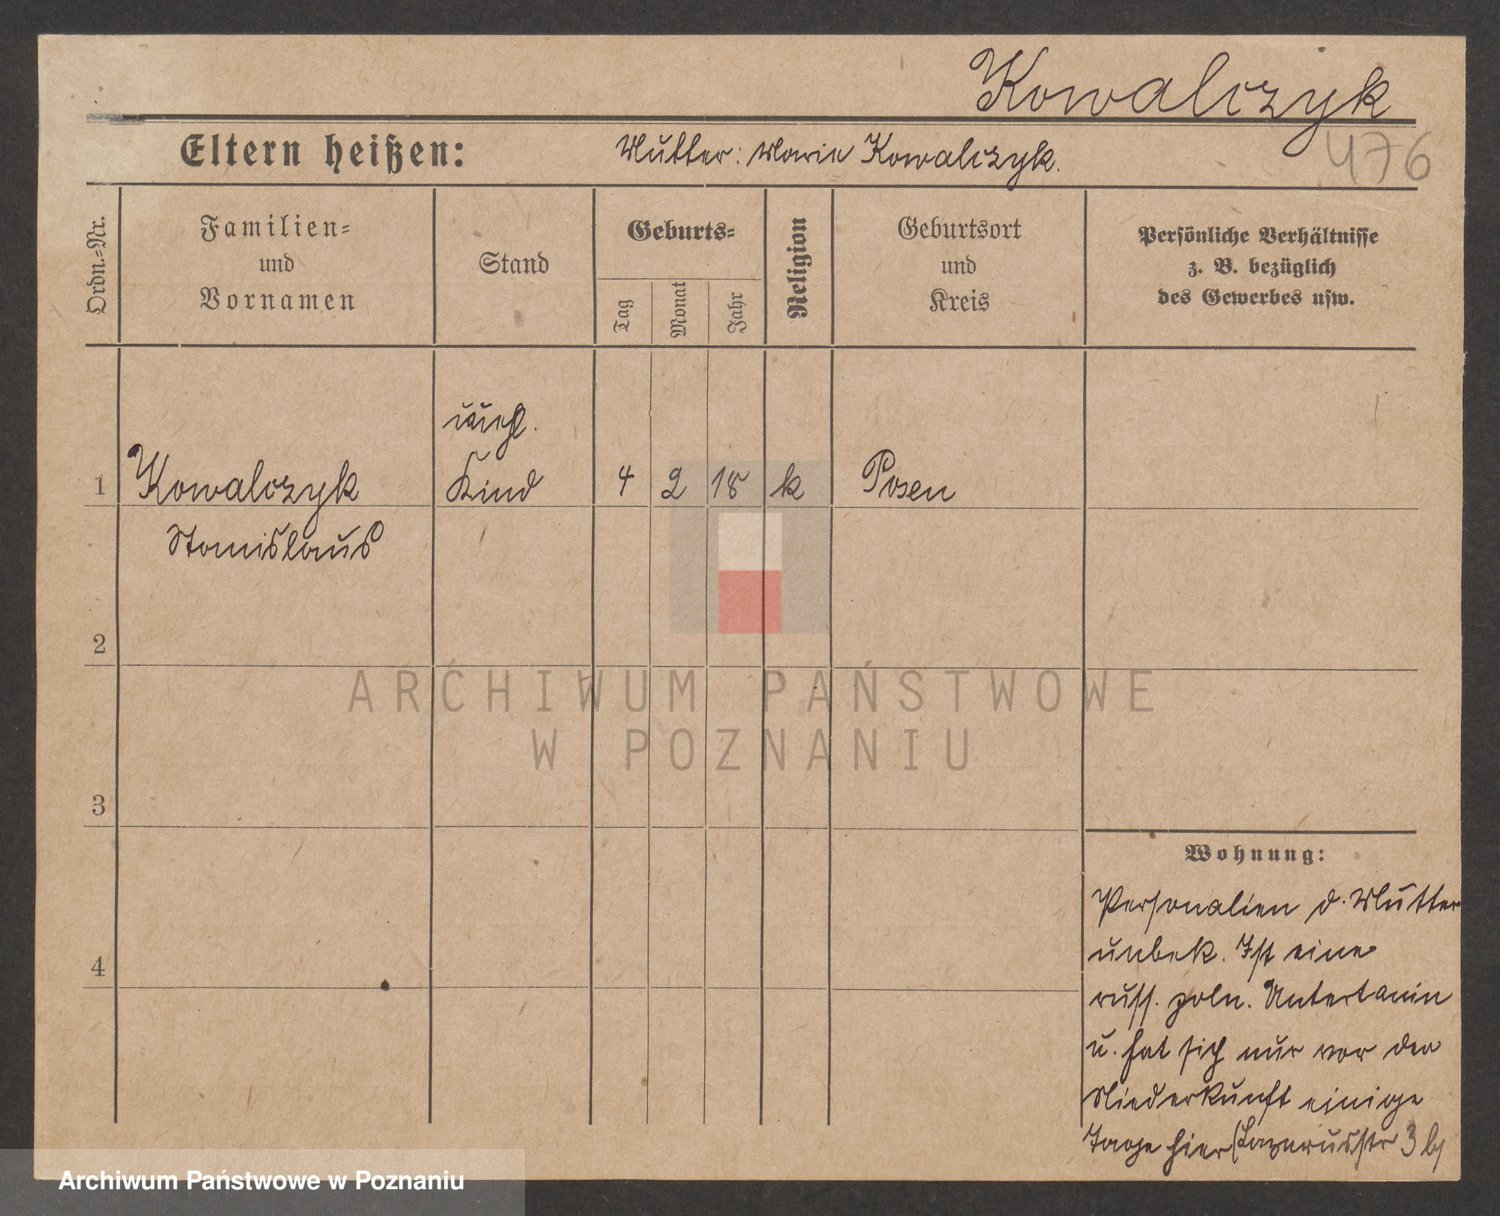 Kowalczyk
476
Eltern heißen: Mutter: Marie Kowalczyk.
Ordn.=Nr.
Familien=
und
Vornamen
Stand
Geburts=
Tag
Monat
Jahr
Religion
Geburtsort
und
Kreis
Persönliche Verhältnisse
z. B. bezüglich
des Gewerbes usw.
unehl.
1 Kowalczyk Kind 4 2 18 k Posen
Stanislaus
2
3
4
Wohnung:
Personalien d. Mutter
unbek. Ist eine
russ. poln. Untertanin
u. hat sich nur vor der
Niederkunft einige
Tage hier (Lazarusstr 3 b)
ARCHIWUM PAŃSTWOWE
W POZNANIU
Archiwum Państwowe w Poznaniu